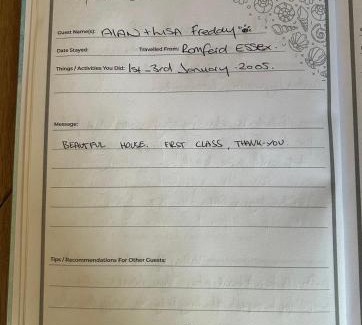 Guest Name(s): ALAN + LISA Freddy
Date Stayed: Travelled From: Romford ESSEX.
Things / Activities You Did: 1st - 3rd January 2005.
Message:
BEAUTIFUL HOUSE. FIRST CLASS, THANK-YOU
Tips / Recommendations For Other Guests: